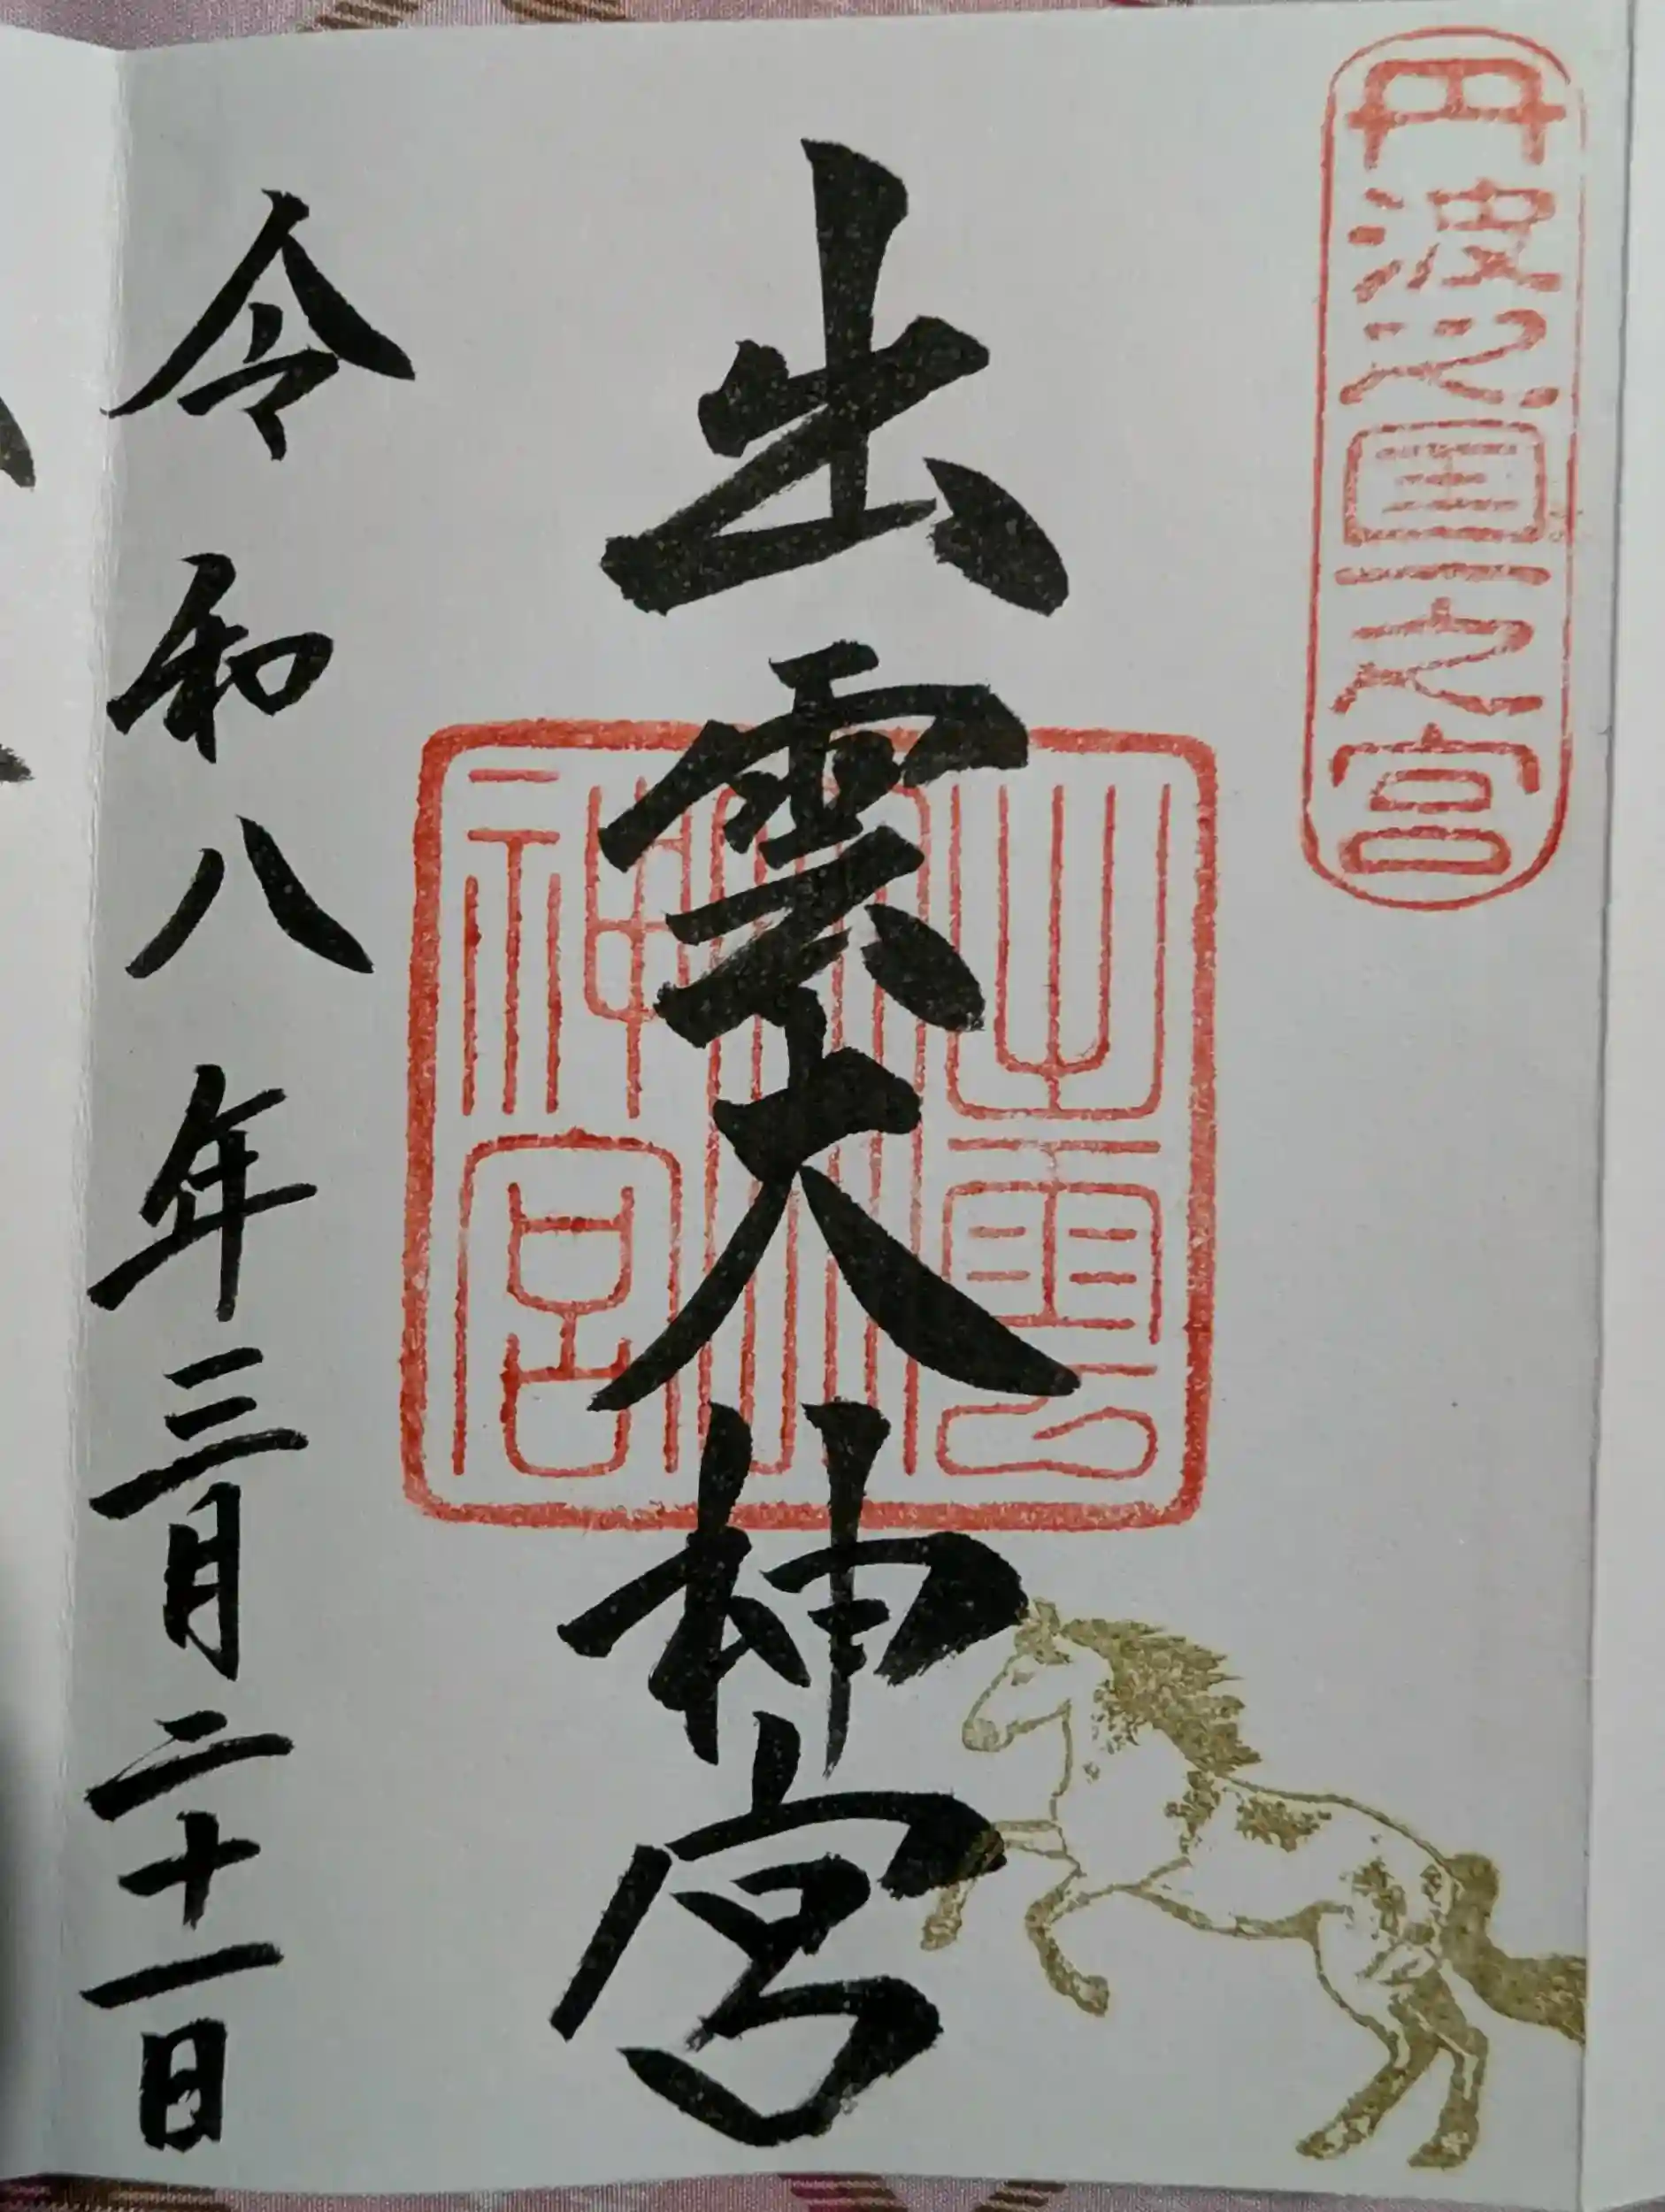 丹波之国一之宮
出雲大神宮
出雲大神宮
令和八年三月二十一日